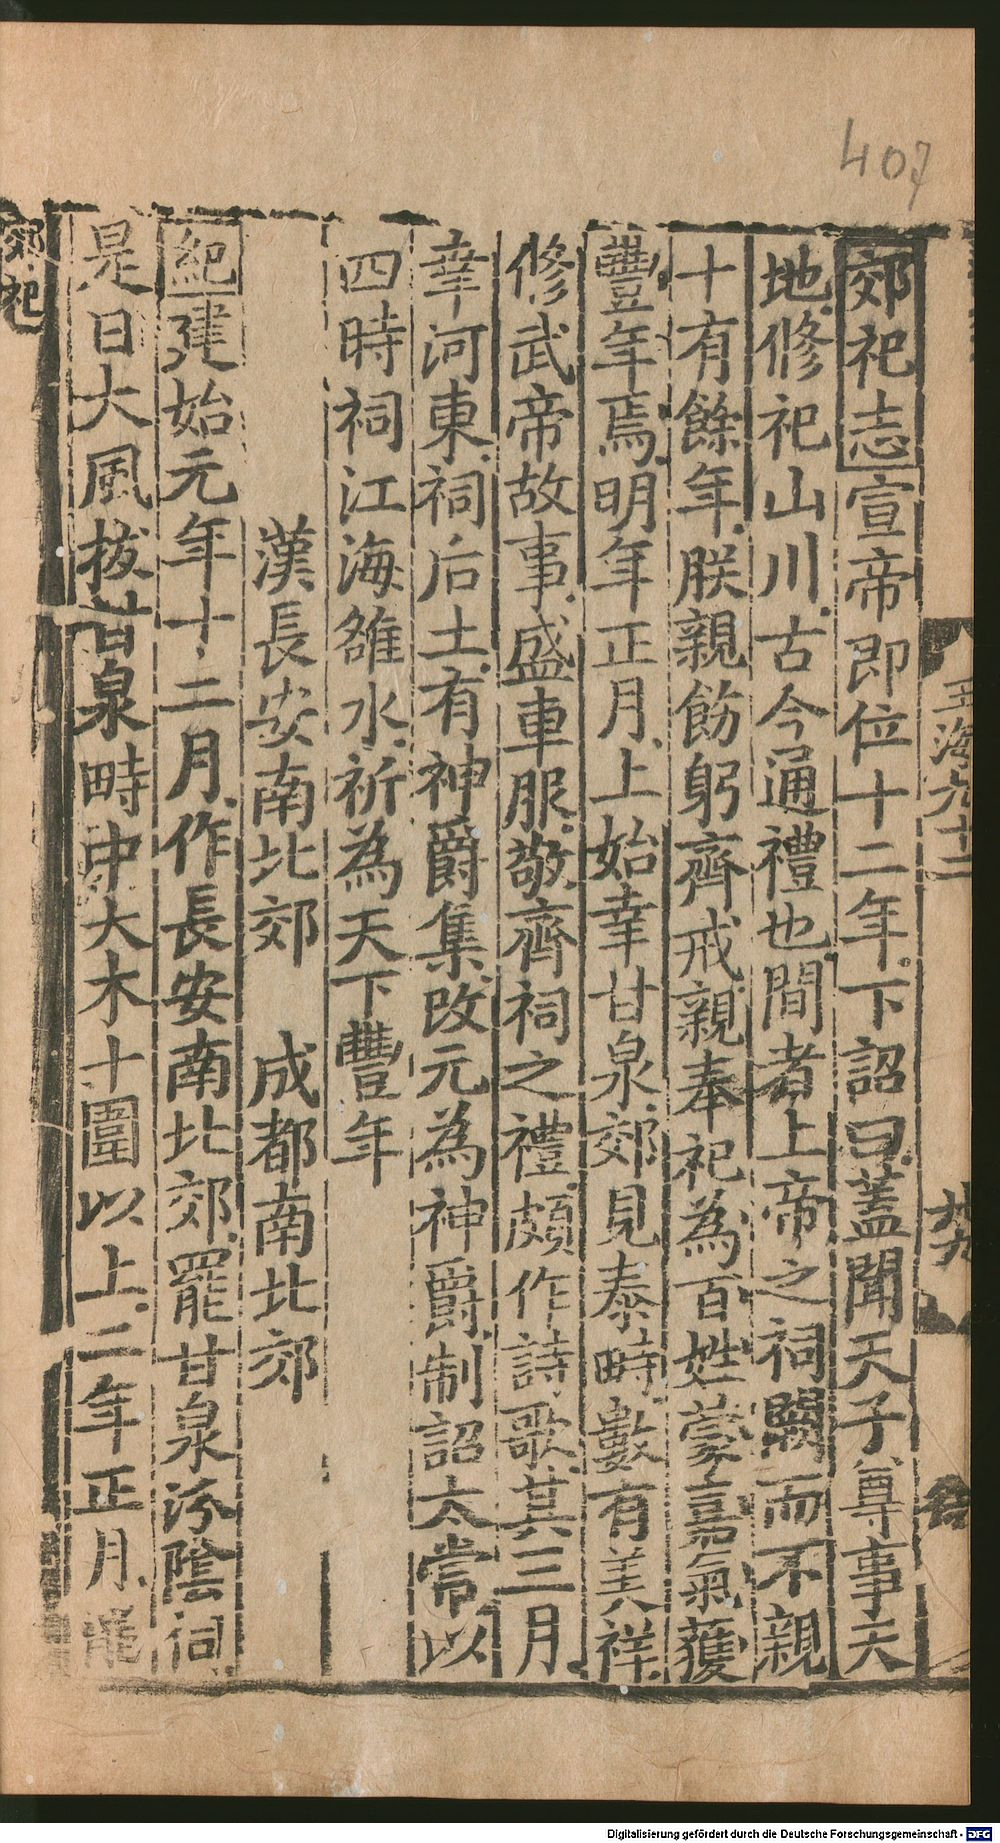 407
玉海九十二
廿九
郊祀志宣帝即位十二年下詔曰蓋聞天子尊事天
地修祀山川古今通禮也間者上帝之祠闕而不親
十有餘年朕親飭躬齊戒親奉祀為百姓蒙嘉氣獲
豐年焉明年正月上始幸甘泉郊見泰畤數有美祥
修武帝故事盛車服敬齊祠之禮頗作詩歌其三月
幸河東祠后土有神爵集改元為神爵制詔太常以
四時祠江海雒水祈為天下豐年
漢長安南北郊　成都南北郊
紀建始元年十二月作長安南北郊罷甘泉汾陰祠
是日大風拔甘泉畤中大木十圍以上二年正月罷
郊祀
Digitalisierung gefördert durch die Deutsche Forschungsgemeinschaft - DFG